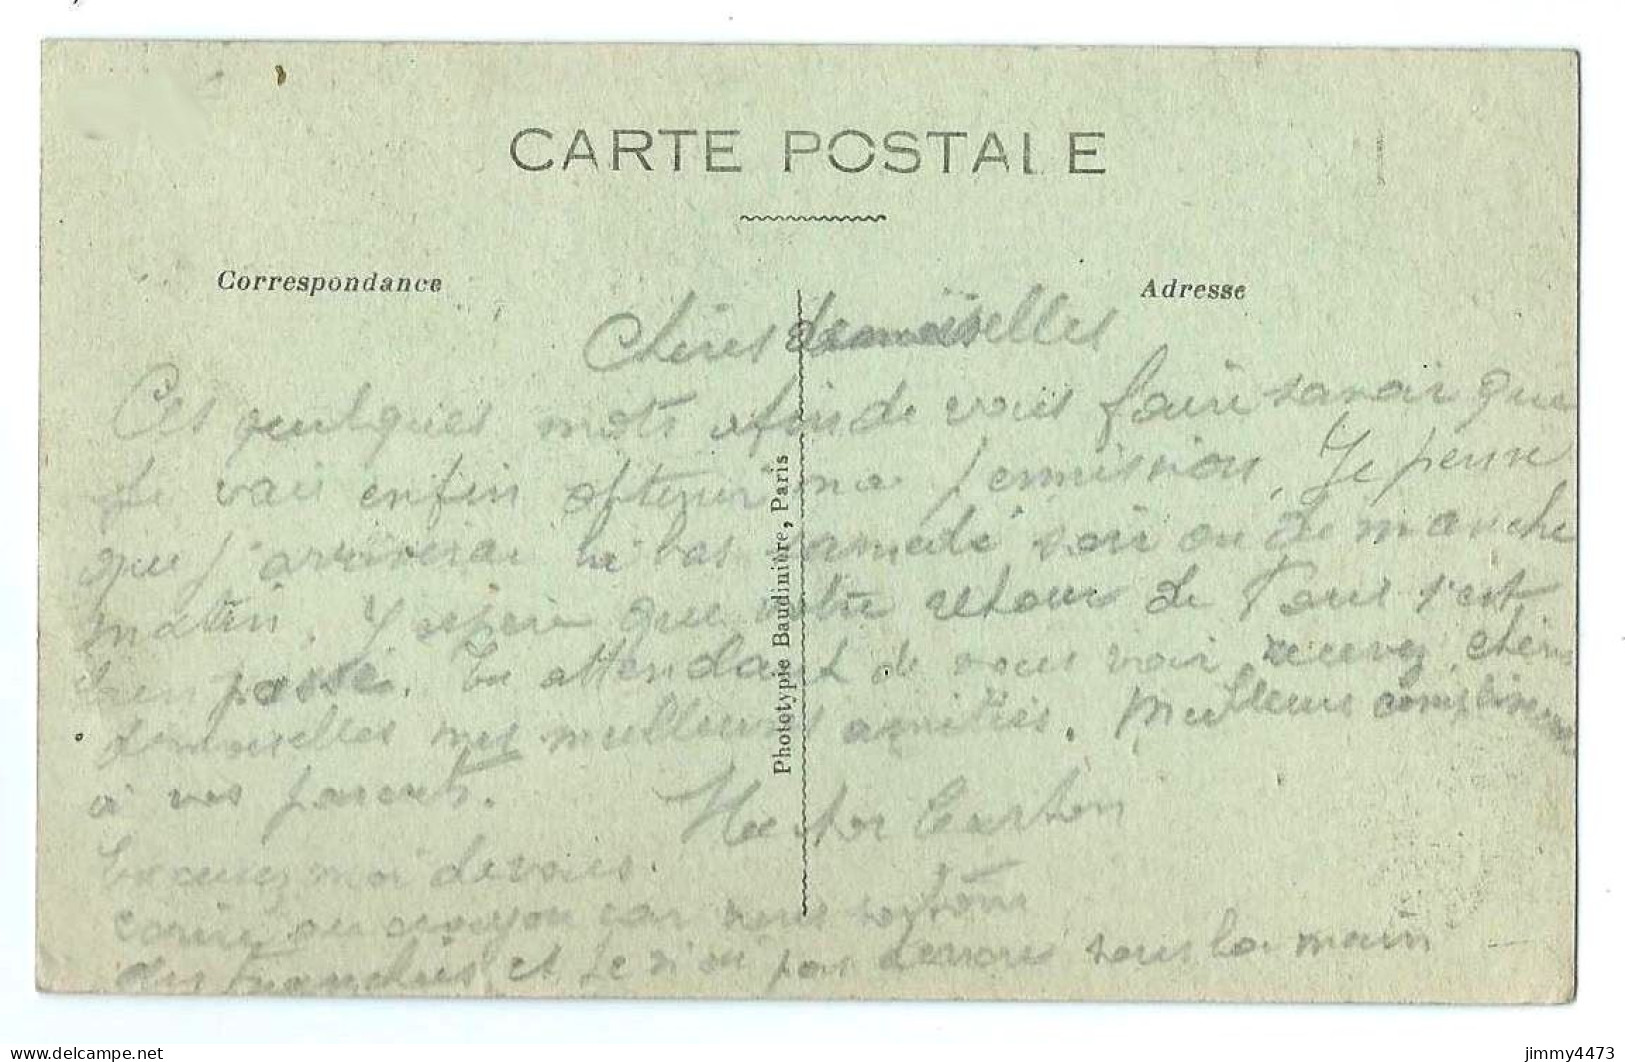 CARTE POSTALE
Correspondance
Adresse
Chères demoiselles
Ces quelques mots afin de vous faire savoir que
Je vais enfin obtenir ma permission. Je pense
que j'arriverai là bas samedi soir ou dimanche
matin. J'espère que votre retour de Paris s'est
bien passé. En attendant de vous voir recevez chères
demoiselles mes meilleures amitiés. Meilleurs compliments
à vos parents.
Hector
Excusez moi de vous
ecrire au crayon car nous sortons
des tranchées et je n'ai pas sous la main
Phototypie Baudinière, Paris
delcampe.net
jimmy4473